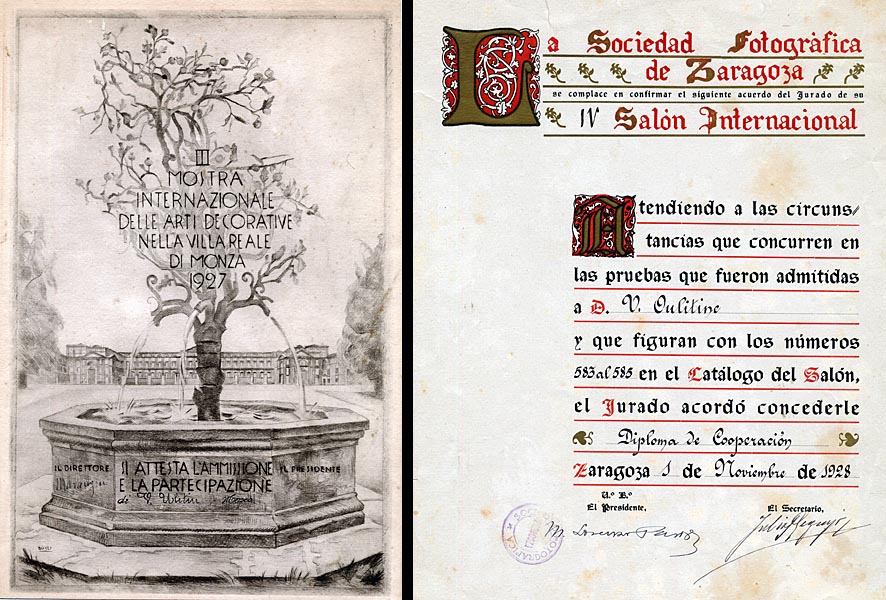 III
MOSTRA
INTERNAZIONALE
DELLE ARTI DECORATIVE
NELLA VILLA REALE
DI MONZA
1927
IL DIRETTORE
SI ATTESTA L'AMMISSIONE
E LA PARTECIPAZIONE
IL PRESIDENTE
di V. Ulitin
La Sociedad Fotogràfica
de Zaragoza
se complace en confirmar el siguiente acuerdo del Jurado de su
IV Salón Internacional
Atendiendo a las circuns-
tancias que concurren en
las pruebas que fueron admitidas
a D. V. Oulitine
y que figuran con los números
583 al 585 en el Catálogo del Salón,
el Jurado acordó concederle
Diploma de Cooperación
Zaragoza 1 de Noviembre de 1928
V.º B.º
El Presidente,
El Secretario,